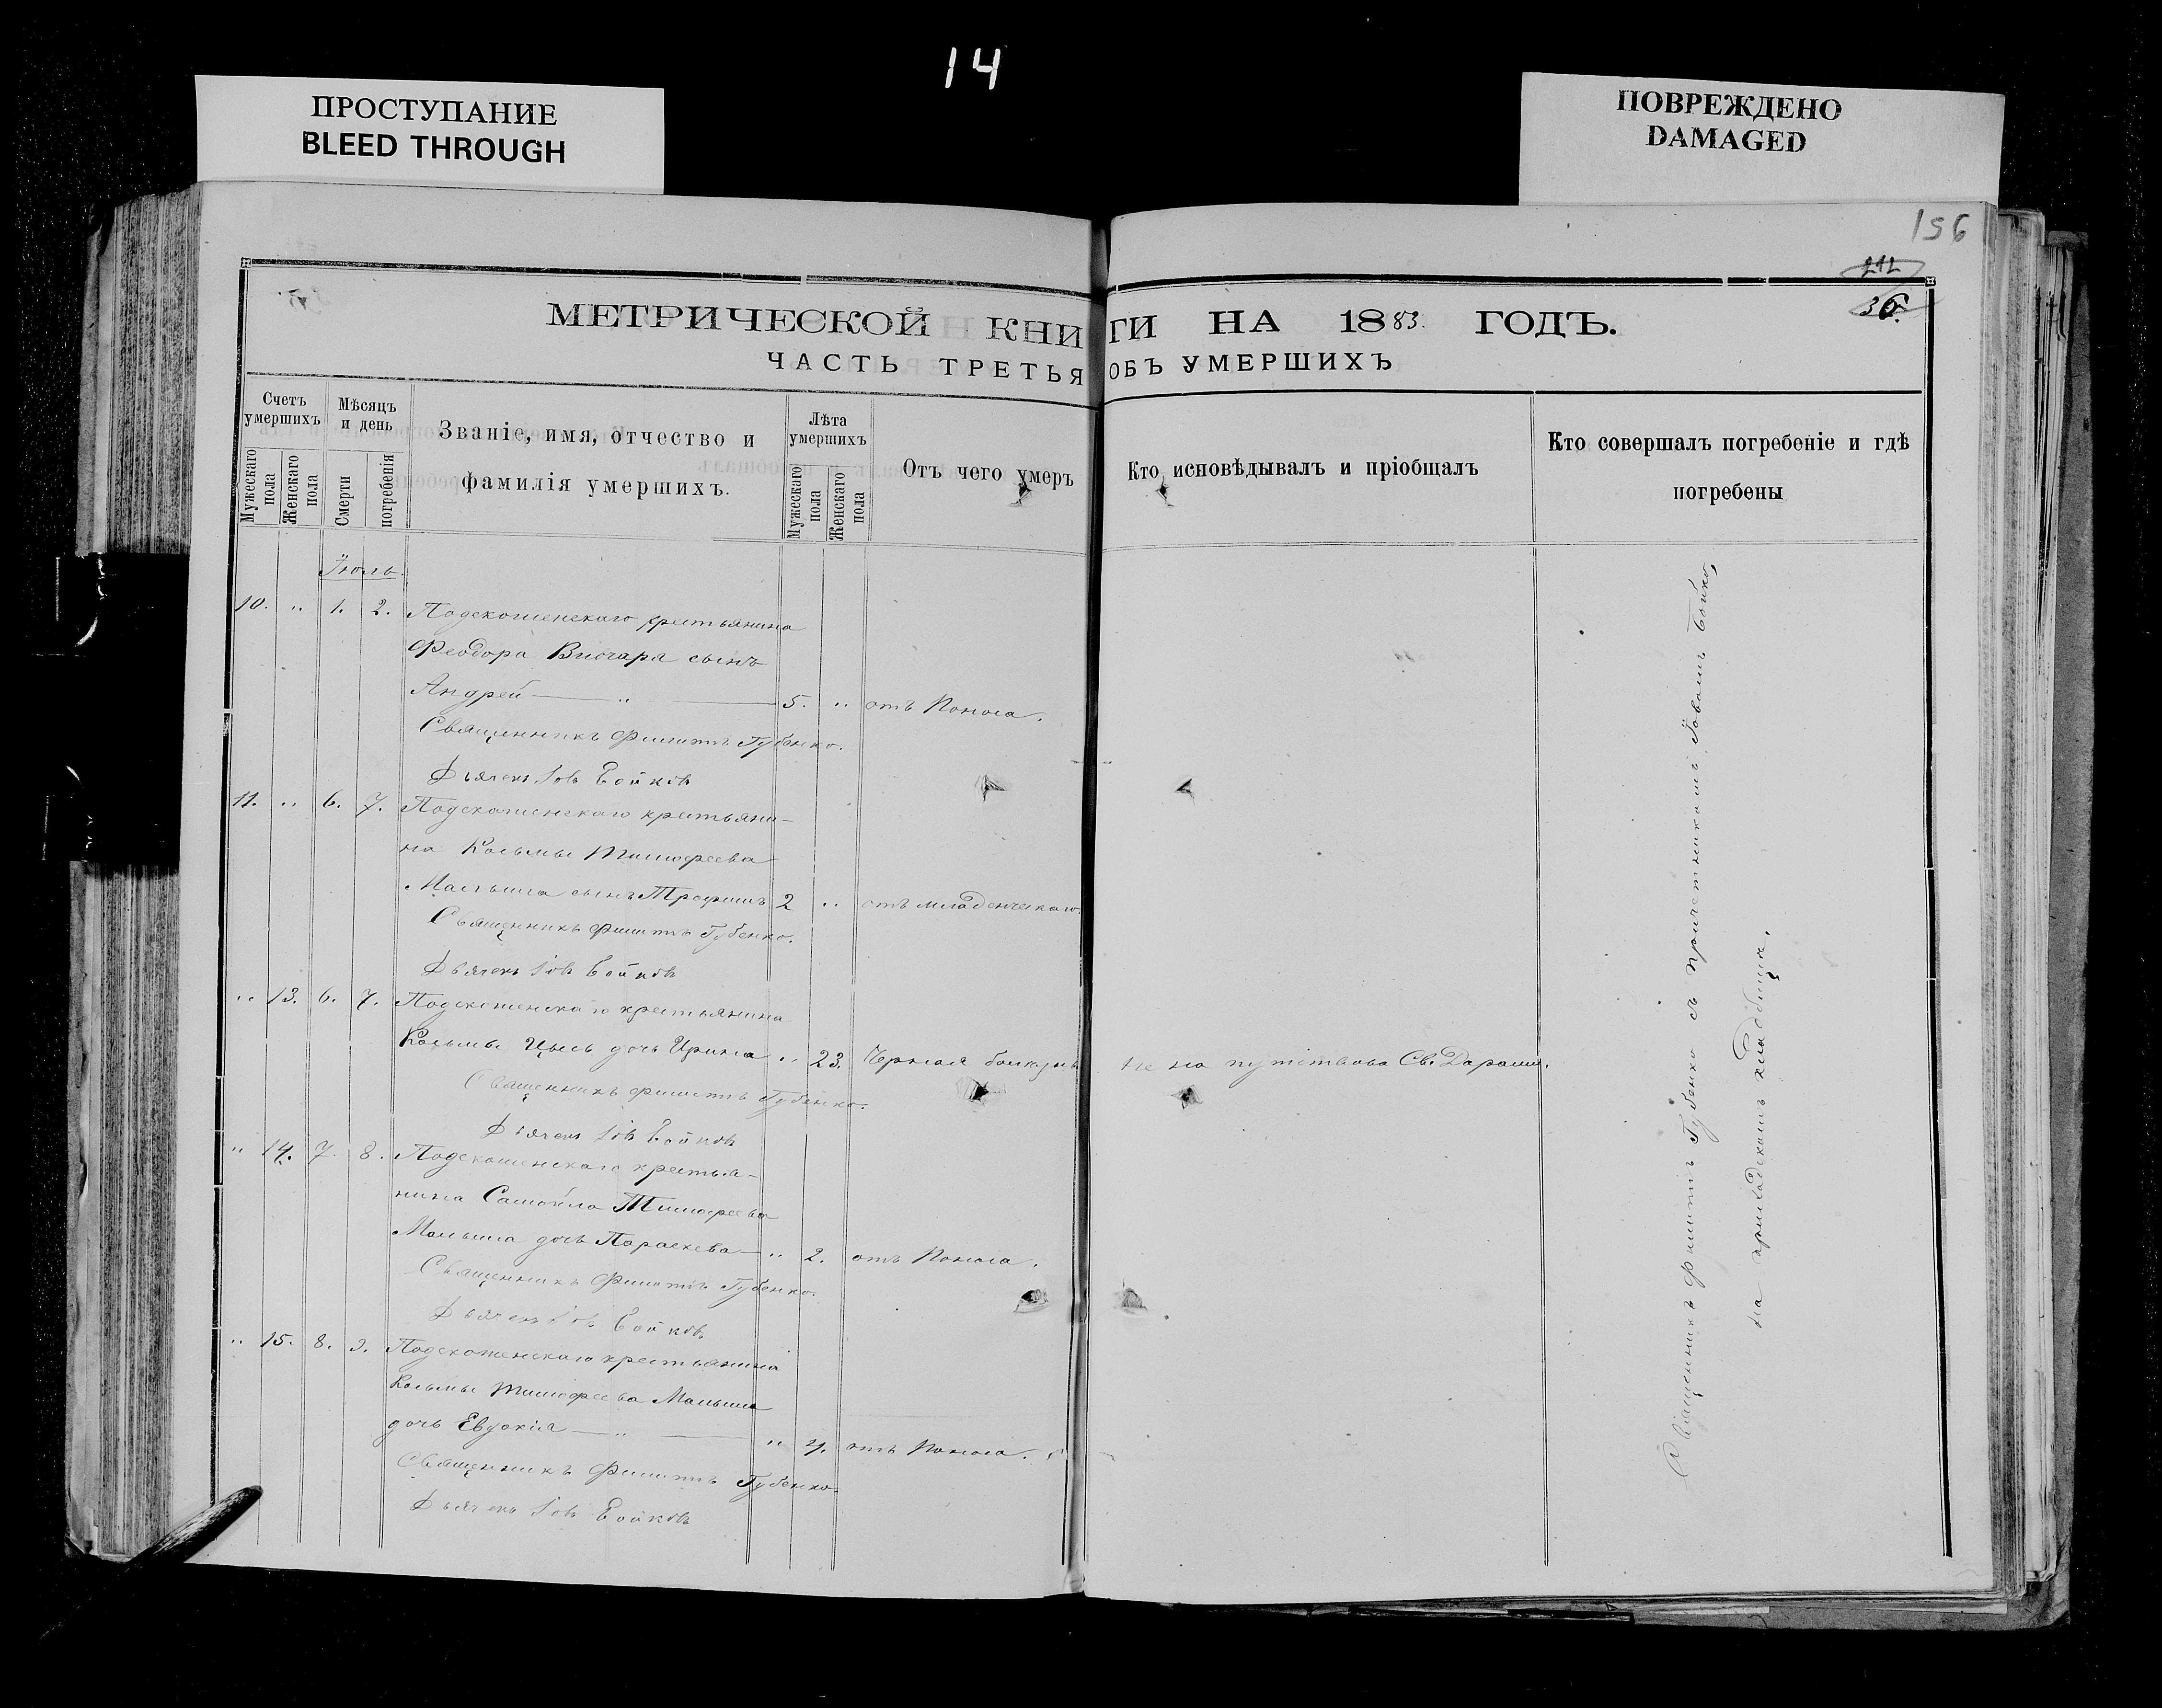 14
ПРОСТУПАНИЕ
BLEED THROUGH
ПОВРЕЖДЕНО
DAMAGED
156
212
36.
МЕТРИЧЕСКОЙ КНИГИ НА 1883. ГОДЪ.
ЧАСТЬ ТРЕТЬЯ ОБЪ УМЕРШИХЪ
Счетъ умершихъ
Мужескаго пола
Женскаго пола
Мѣсяцъ и день
Смерти
погребенія
Званіе, имя, отчество и
фамилія умершихъ.
Лѣта умершихъ
Мужескаго пола
Женскаго пола
Отъ чего умеръ
Кто исповѣдывалъ и пріобщалъ
Кто совершалъ погребеніе и гдѣ
погребены
Іюль.
10. " 1. 2. крестьянина
Феодора сынъ
Андрей — " — 5. " отъ Поноса.
Священникъ Губенко.
Дьячекъ Іовъ Бойковъ
11. " 6. 7. крестьяни-
на Козьмы Тимофеева
сынъ Трофимъ 2 " отъ младенческаго.
Священникъ Губенко.
Дьячекъ Іовъ Бойковъ
" 13. 6. 7. крестьянина
Козьмы дочь Ирина " 23. Черная
Св. Дарами.
Священникъ Губенко.
Дьячекъ Іовъ Бойковъ
" 14. 7. 8. крестья-
нина Самойла Тимофеева
дочь Параскева — " 2. отъ Поноса.
Священникъ Губенко.
Дьячекъ Іовъ Бойковъ
" 15. 8. 9. крестьянина
Козьмы Тимофеева
дочь Евдокія — " — " 4. отъ Поноса.
Священникъ Губенко.
Дьячекъ Іовъ Бойковъ
Священникъ Губенко съ причетникомъ Іовомъ Бойко,
на приходскомъ кладбищѣ.